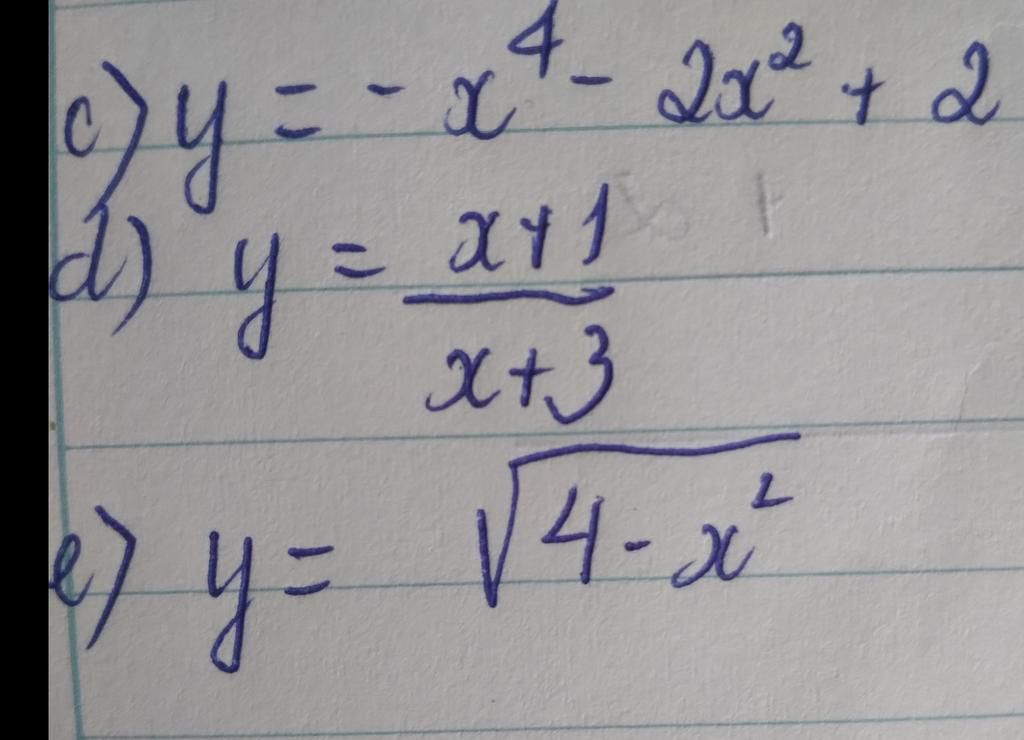 c) y = - x⁴ - 2x² + 2
d) y = (x+1)/(x+3)
e) y = √(4 - x²)